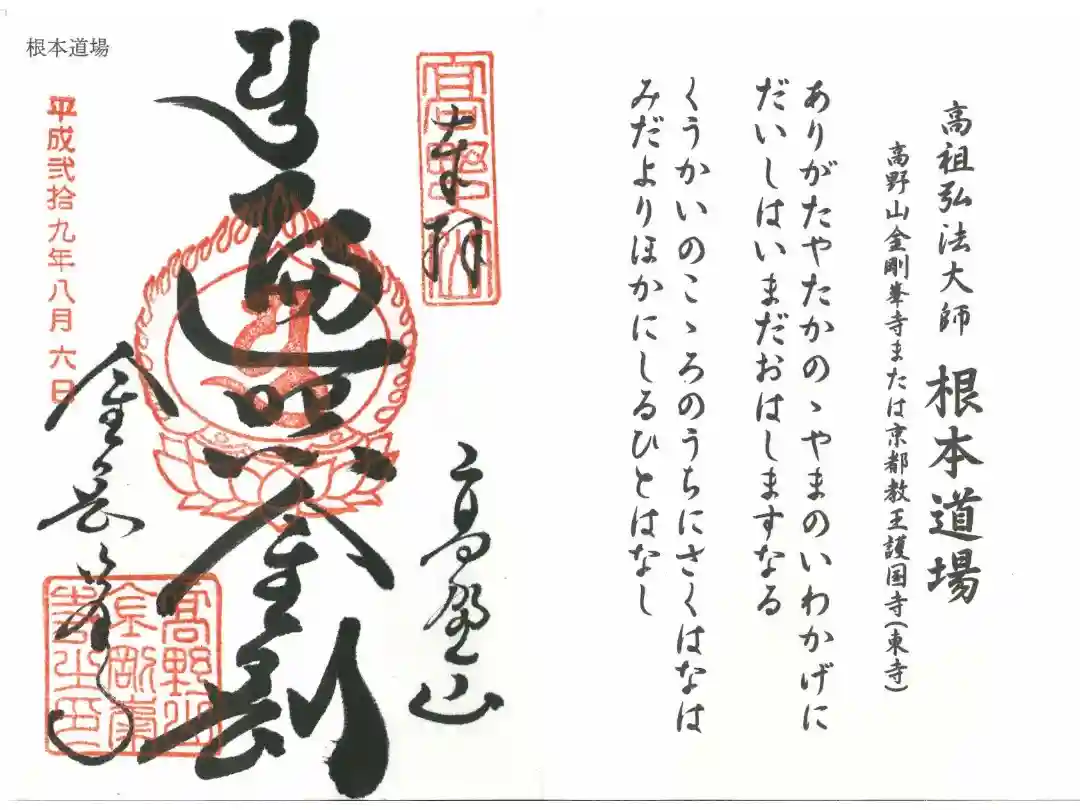 高祖弘法大師 根本道場
高野山金剛峯寺または京都教王護国寺(東寺)
ありがたやたかのゝやまのいわかげに
だいしはいまだおはしますなる
くうかいのこゝろのうちにさくはなは
みだよりほかにしるひとはなし
奉拝
高野山
高野山
遍照金剛
高野山金剛峯寺之印
平成弐拾九年八月六日
根本道場